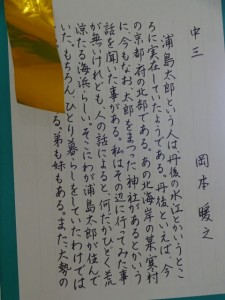 中三
岡本暖之
浦島太郎という人は丹後の水江とかいうとこ
ろに実在していたようである。丹後といえば、今
の京都府の北部である。あの北海岸の某寒村
に今もなお、太郎をまつった神社があるとかいう
話を聞いた事がある。私はその辺に行ってみた事
が無いけれども、人の話によると、何だかひどく荒
涼たる海浜らしい。そこにわが浦島太郎が住んで
いた。もちろん、ひとり暮らしをしていたわけでは
ある。弟も妹もある。また、大勢の